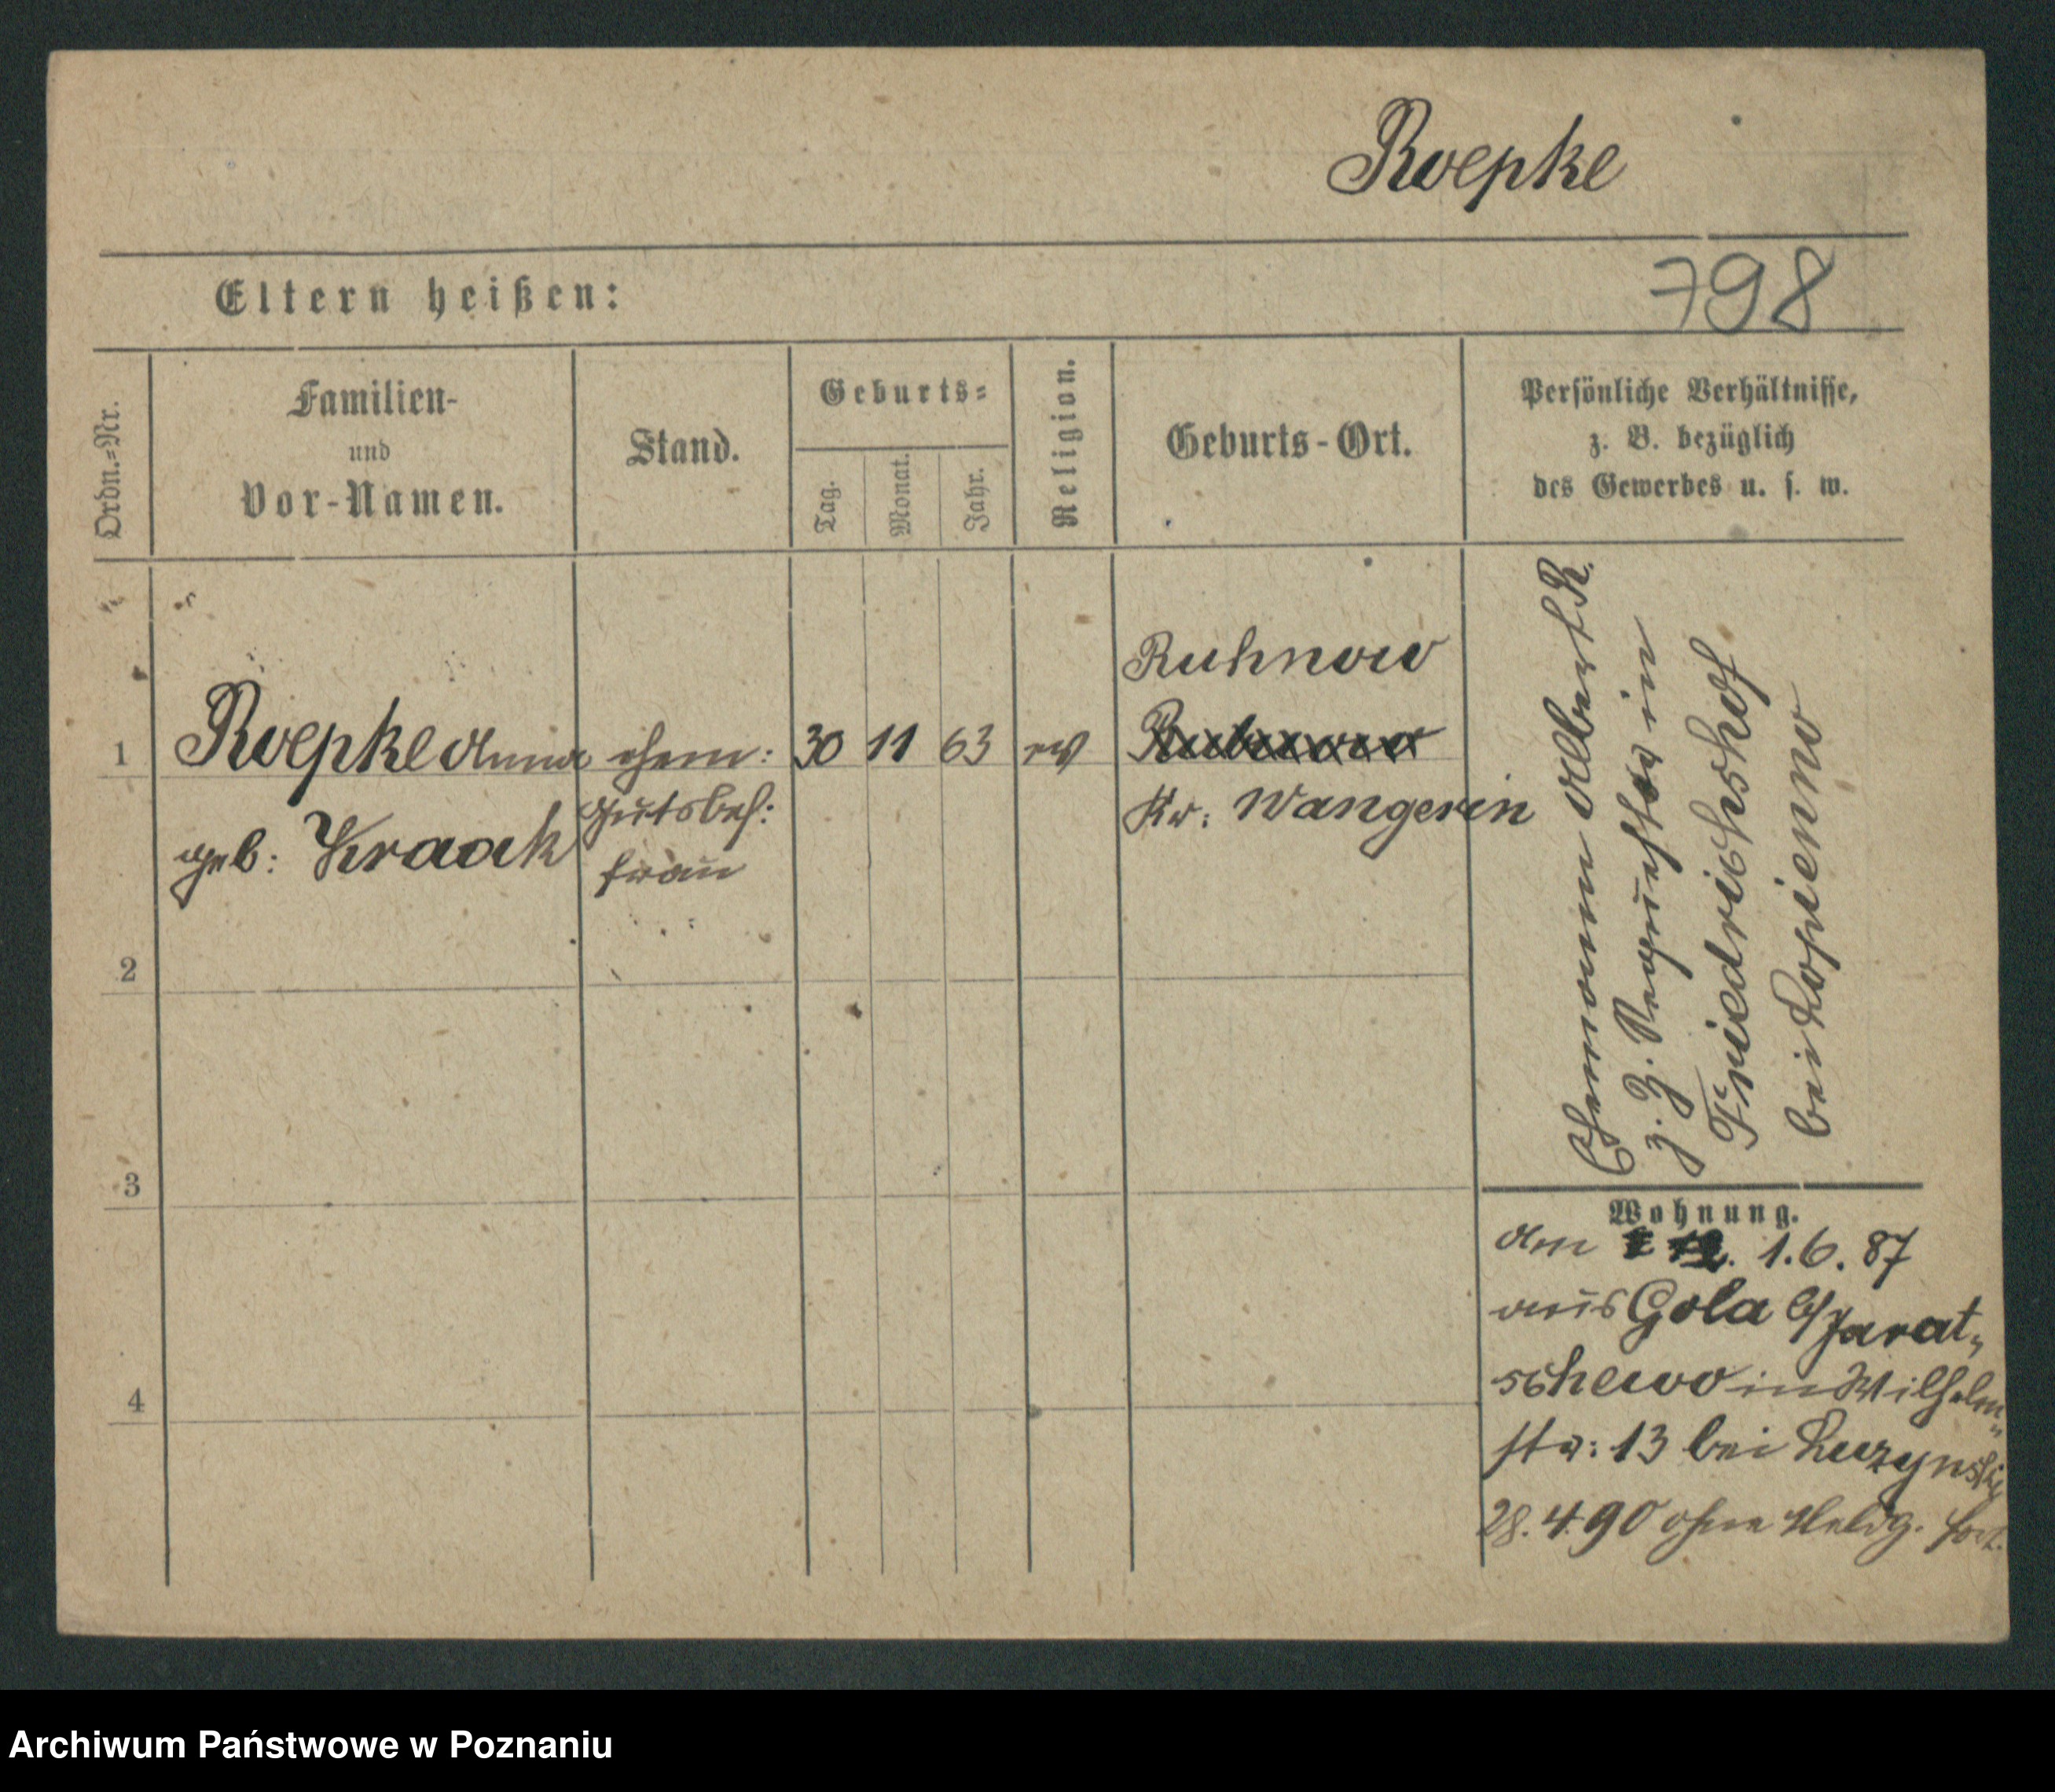 Roepke
Eltern heißen:
798
Ordn.=Nr.
Familien-
und
Vor-Namen.
Stand.
Geburts=
Tag.
Monat.
Jahr.
Religion.
Geburts-Ort.
Persönliche Verhältnisse,
z. B. bezüglich
des Gewerbes u. s. w.
1
Roepke Anna
geb: Kraak
ehem:
Gutsbes:
frau
30
11
63
ev
Ruhnow
Kr: Wangerin
Ehemann Albert R.
z. Z. in
Friedrichshof
bei Kopienno
2
3
4
Wohnung.
Am 1.6.87
aus Gola b/Jarat„
schewo in Wilhelm„
str: 13 bei
28.4.90 ohne Meldg. fort.
Archiwum Państwowe w Poznaniu